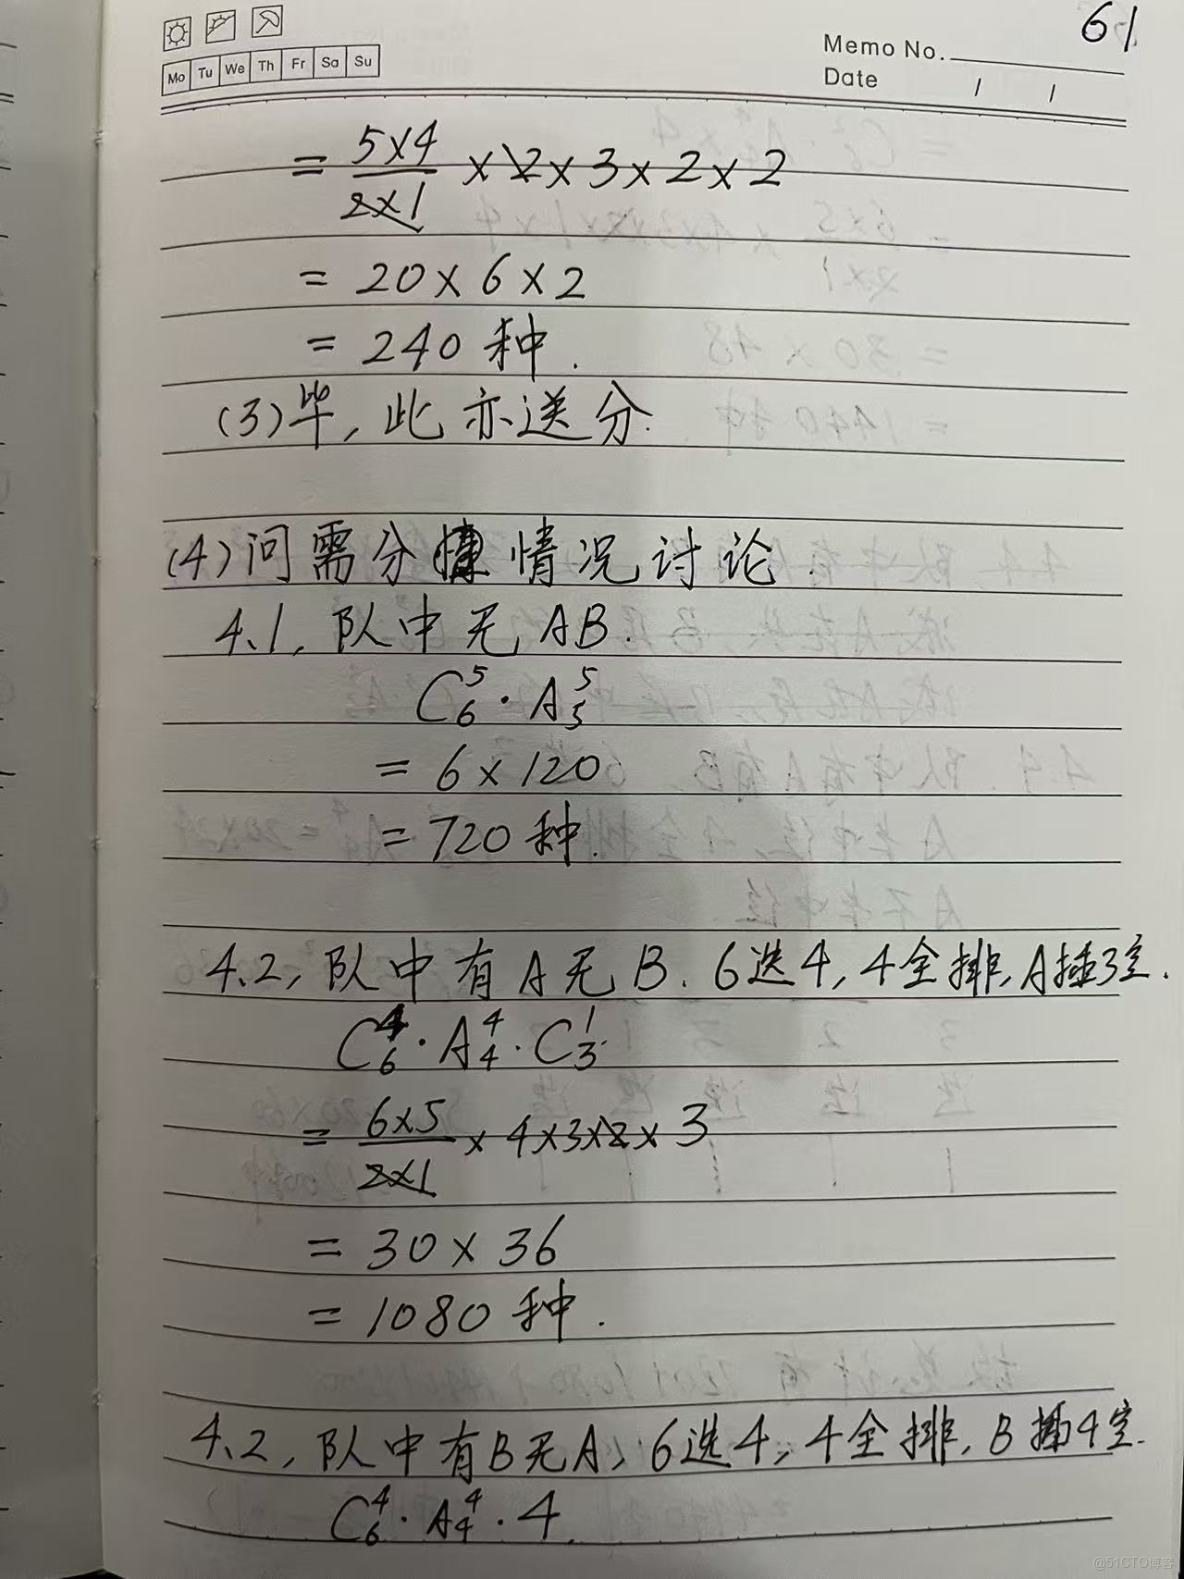 61
Memo No.
Mo Tu We Th Fr Sa Su
Date / /
= 5×4/2×1 × 2 × 3 × 2 × 2
= 20 × 6 × 2
= 240 种.
(3)毕, 此亦送分.
(4)问需分情况讨论.
4.1, 队中无AB.
C₆⁵ · A₅⁵
= 6 × 120
= 720 种.
4.2, 队中有A无B. 6选4, 4全排, A插3空.
C₆⁴ · A₄⁴ · C₃¹
= 6×5/2×1 × 4×3×2 × 3
= 30 × 36
= 1080 种.
4.2, 队中有B无A, 6选4, 4全排, B插4空.
C₆⁴ · A₄⁴ · 4.
@51CTO博客